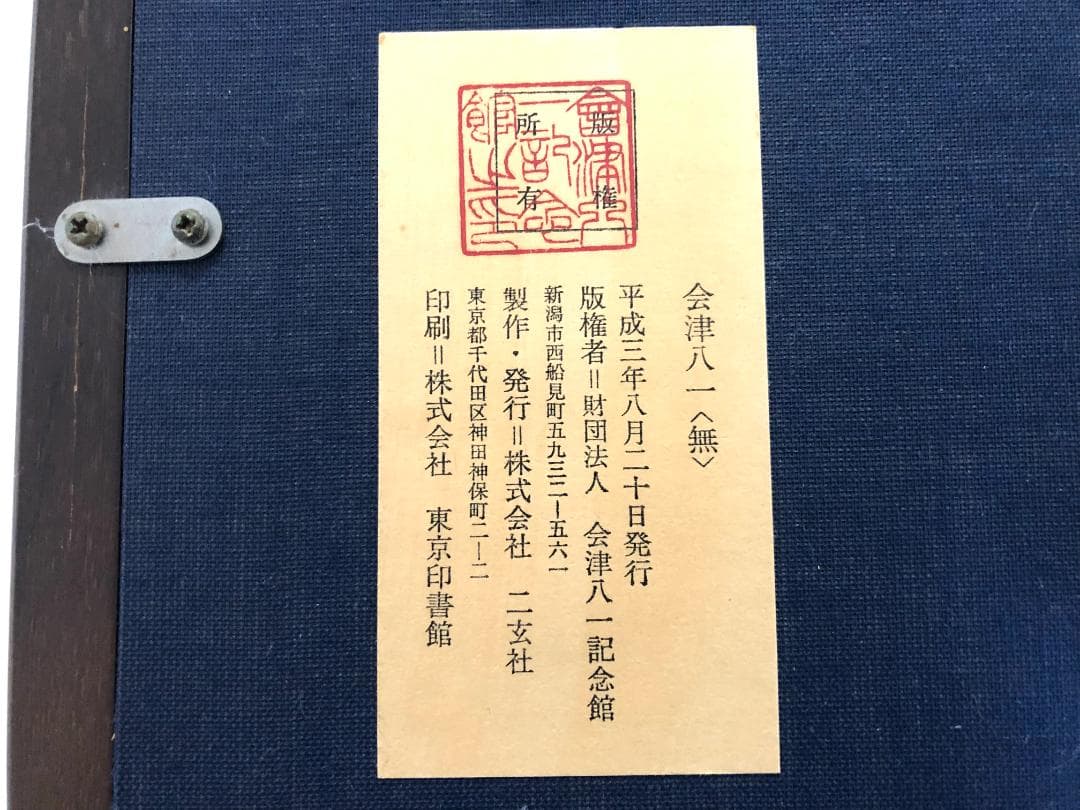 版権
所有
會津八
一記念
館之印
会津八一〈無〉
平成三年八月二十日発行
版権者＝財団法人　会津八一記念館
新潟市西船見町五九三二ー五六一
製作・発行＝株式会社　二玄社
東京都千代田区神田神保町二ー二
印刷＝株式会社　東京印書館